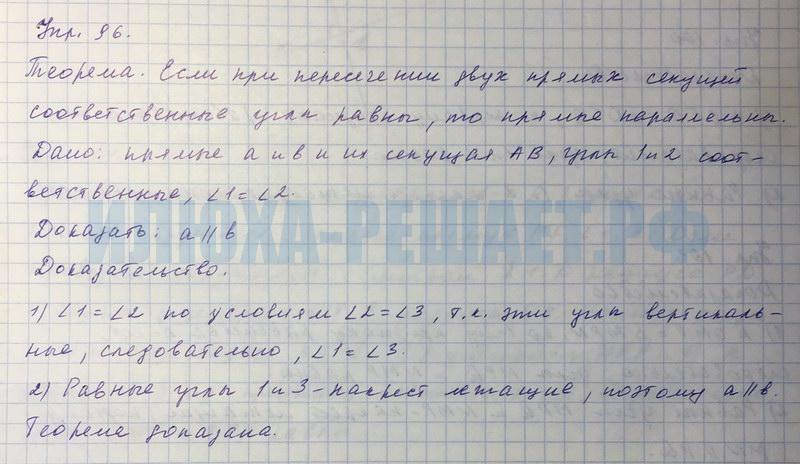 Упр. 96.
Теорема. Если при пересечении двух прямых секущей
соответственные углы равны, то прямые параллельны.
Дано: прямые a и b и их секущая AB, углы 1 и 2 соот-
ветственные, ∠1 = ∠2.
ИЛЮХА-РЕШАЕТ.РФ
Доказать: a || b
Доказательство.
1) ∠1 = ∠2 по условиям ∠2 = ∠3, т.к. эти углы вертикаль-
ные, следовательно, ∠1 = ∠3.
2) Равные углы 1 и 3 - накрест лежащие, поэтому a || b.
Теорема доказана.